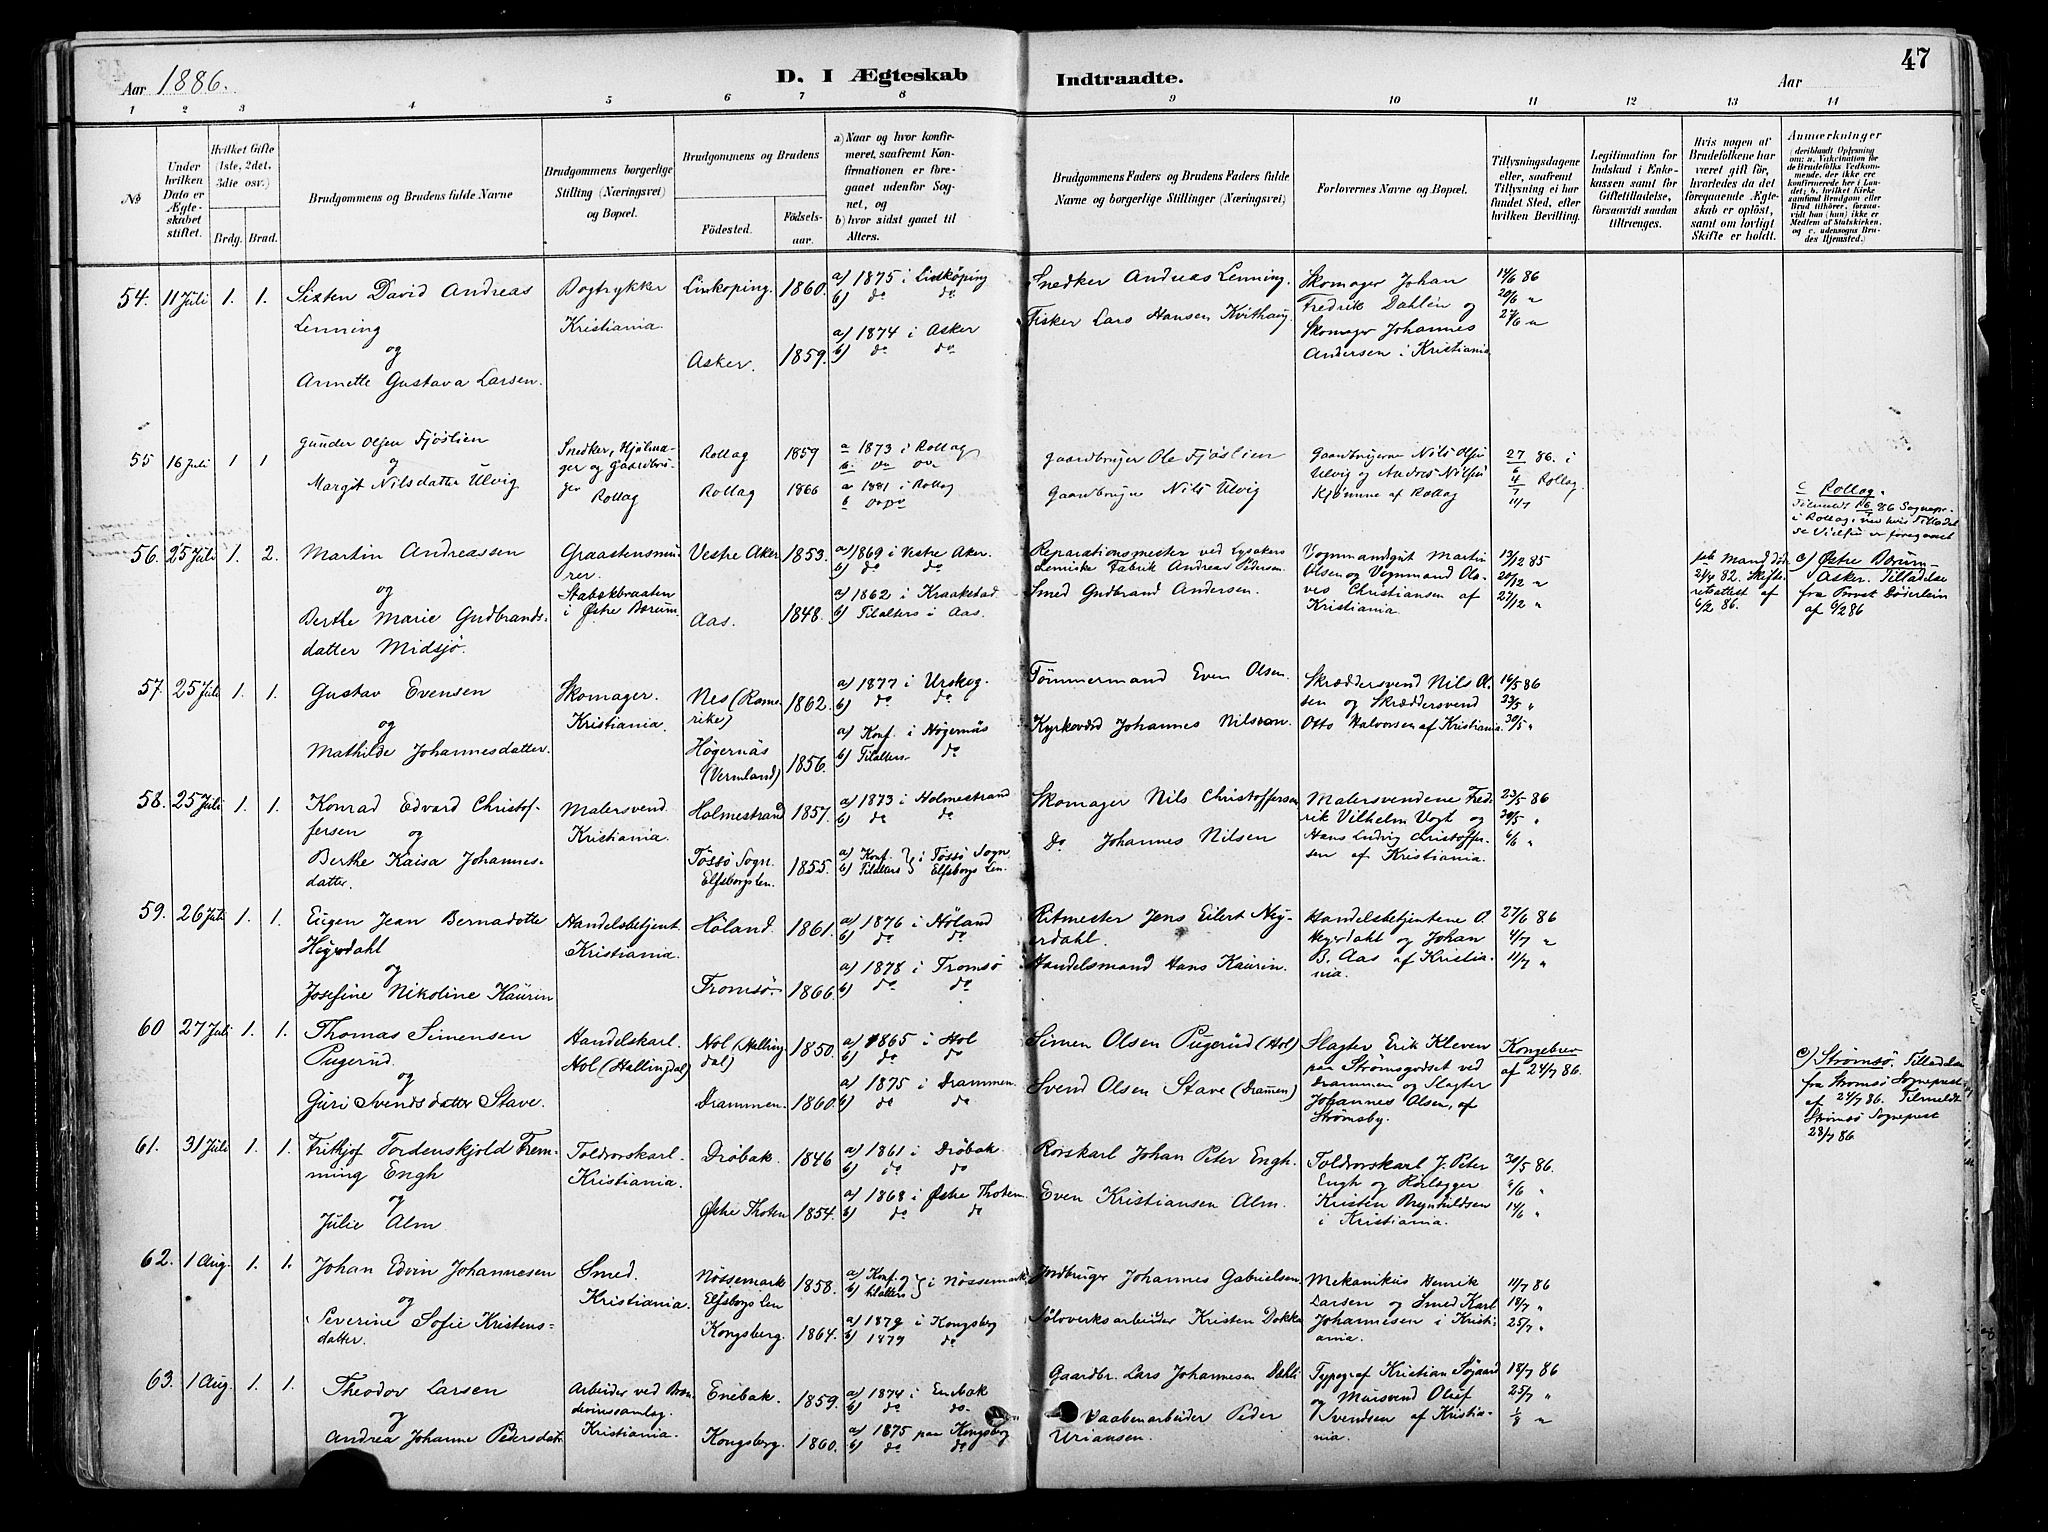 47
Aar 1886.
D. I Ægteskab Indtraadte.
Aar
1 2 3 4 5 6 7 8 9 10 11 12 13 14
No
Under hvilken Dato er Ægteskabet stiftet.
Hvilket Gifte (1ste, 2det, 3die osv.)
Brdg. Brud.
Brudgommens og Brudens fulde Navne
Brudgommens borgerlige Stilling (Næringsvei) og Bopæl.
Brudgommens og Brudens
Fødested.
Fødselsaar.
a) Naar og hvor konfirmeret, saafremt Konfirmationen er foregaaet udenfor Sognet, og
b) hvor sidst gaaet til Alters.
Brudgommens Faders og Brudens Faders fulde Navne og borgerlige Stillinger (Næringsvei)
Forlovernes Navne og Bopæl.
Tillysningsdagene eller, saafremt Tillysning ei har fundet Sted, efter hvilken Bevilling.
Legitimation for Indskud i Enkekassen samt for Giftetilladelse, forsaavidt saadan tiltrænges.
Hvis nogen af Brudefolkene har været gift før, hvorledes da det foregaaende Ægteskab er opløst, samt om lovligt Skifte er holdt.
Anmærkninger (deriblandt Oplysning om: a. Vakcination for de Brudefolks Vedkommende, der ikke ere konfirmerede her i Landet; b. hvilket Kirkesamfund Brudgom eller Brud tilhører, forsaavidt han (hun) ikke er Medlem af Statskirken, og c. udensogns Brudes Hjemsted.)
54. 11 Juli 1. 1.
Sixten David Andreas
Lenning
og
Annette Gustava Larsen.
Bogtrykker
Kristiania.
Linkoping. 1860.
Asker. 1859.
a) 1875 i Linköping
b) do do
a) 1874 i Asker
b) do do
Snedker Andreas Lenning.
Fisker Lars Hansen Kvithaug.
Skomager Johan
Fredrik Dahlén og
Skomager Johannes
Andersen i Kristiania
14/6 86
20/6 "
27/6 "
55 16 Juli 1 1
Gunder Olsen Fjøslien
og
Margit Nilsdatter Ulvig
Snedker, Hjulmager og Gaardbruger
Rollag
Rollag 1859
Rollag 1866
a 1873 i Rollag
b. do do
a 1881 i Rollag
b do do
Gaardbruger Ole Fjøslien
Gaardbruger Nils Ulvig
Gaardbrugerne Nils Olsen
Ulvig og Anders Nilsen
Kjømme af Rollag
27/6 86. i
4/7 Rollag.
11/7
c Rollag.
56. 25 Juli 1. 2.
Martin Andreassen
og
Berthe Marie Gudbrandsdatter Midsjø.
Graastensmurer.
Stabækbraaten
i Østre Bærum.
Vestre Aker 1853.
Aas. 1848.
a) 1869 i Vestre Aker.
b) do do
a) 1862 i Kraakstad
b) Tilalters i Aas.
Reparationsmester ved Lysakers
Kemiske Fabrik Andreas Pedersen.
Smed Gudbrand Andersen.
Vognmandsgut Martin
Olsen og Vognmand Oleves Christiansen af
Kristiania
13/12 85
20/12 "
27/12 "
Mand død
2/4 82. Skifteretsattest af
6/2 86.
c) Østre Bærum
Asker. Tilladelse
fra Provst Døderlein
af 6/2 86
57. 25 Juli 1. 1.
Gustav Evensen
og
Mathilde Johannesdatter.
Skomager.
Kristiania.
Nes (Romerike) 1862.
Högernäs
(Vermland) 1856.
a) 1877 i Urskog.
b) do do
a) Konf. i Högernäs
b) Tilalters do
Tømmermand Even Olsen.
Kyrkovärd Johannes Nilsson.
Skræddersvend Nils Olsen og Skræddersvend
Otto Halvorsen af Kristiania.
16/5 86
23/5 "
30/5 "
58. 25 Juli 1. 1.
Konrad Edvard Christoffersen
og
Berthe Kaisa Johannesdatter.
Malersvend.
Kristiania.
Holmestrand 1857.
Tössö Sogn
Elfsborgs Len. 1855.
a) 1873 i Holmestrand
b) do do
a) Konf. } i Tössö Sogn
b) Tilalters } Elfsborgs Len.
Skomager Nils Christoffersen
Do Johannes Nilsen
Malersvendene Fredrik Vilhelm Vogt og
Hans Ludvig Christoffersen af Kristiania.
23/5 86
30/5 "
6/6 "
59. 26 Juli 1. 1.
Eugen Jean Bernadotte
Heyerdahl
og
Josefine Nikoline Kaurin
Handelsbetjent
Kristiania.
Høland. 1861.
Tromsø. 1866.
a) 1876 i Høland
b) do do
a) 1878 i Tromsø
b) do do
Ritmester Jens Eilert Heyerdahl.
Handelsmand Hans Kaurin.
Handelsbetjentene O
Heyerdahl og Johan
B. Aas af Kristiania.
27/6 86
4/7 "
11/7 "
60 27 Juli 1. 1.
Thomas Simensen
Pugerud.
og
Guri Svendsdatter Stave.
Handelskarl.
Hol (Hallingdal)
Hol (Hallingdal) 1850.
Drammen. 1860.
a) 1865 i Hol
b) do do
a) 1875 i Drammen.
b) do do
Simen Olsen Pugerud (Hol)
Svend Olsen Stave (Dramen)
Slagter Erik Kleven
paa Strømsgodset ved
Drammen og Slagter
Johannes Olsen, af
Strømsby.
Kongebrev
af 24/7 86.
c) Strømsø. Tilladelse
fra Strømsø Sogneprest
af 24/7 86. Tilmeldt
Strømsø Sogneprest
28/7 86
61. 31 Juli 1. 1.
Frithjof Tordenskjold Fremming Engh
og
Julie Alm
Toldrorskarl.
Kristiania.
Drøbak. 1846
Østre Thoten 1854.
a) 1861 i Drøbak
b) do do
a) 1868 i Østre Thoten
b) do do
Rorskarl Johan Peter Engh.
Even Kristiansen Alm.
Toldrorskarl J. Peter
Engh og Rørlægger
Kristen Brynhildsen
i Kristiania.
30/5 86.
6/6 "
14/6 "
62. 1 Aug. 1. 1.
Johan Edvin Johannesen
og
Severine Sofie Kristensdatter.
Smed.
Kristiania.
Nössemark
Elfsborgs Len 1858.
Kongsberg. 1864.
a) Konf. og } i Nössemark
b) tilalters
a) 1879 i Kongsberg
b) 1879 do
Jordbruger Johannes Gabrielsen
Sølvverksarbeider Kristen Dokka
Mekanikus Henrik
Larsen og Smed Karl
Johannesen i Kristiania.
11/7 86
18/7 "
25/7 "
63. 1 Aug. 1. 1.
Theodor Larsen
og
Andrea Johanne Pedersdat
Arbeider ved Brændevinssamlag.
Kristiania.
Enebak. 1859.
Kongsberg. 1860.
a) 1874 i Enebak
b) do do.
a) 1875 paa Kongsberg
b) do do
Gaardbr. Lars Johannesen Dahl
Vaabenarbeider Peder
Uriansen.
Typograf Kristian Søgaard
og Mursvend Oluf
Svendsen af Kristiania.
18/7 86
25/7 "
1/8 "